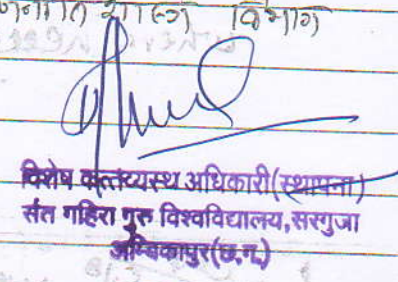 विभाग
विशेष कर्त्तव्यस्थ अधिकारी(स्थापना)
संत गहिरा गुरु विश्वविद्यालय,सरगुजा
अम्बिकापुर(छ.ग.)